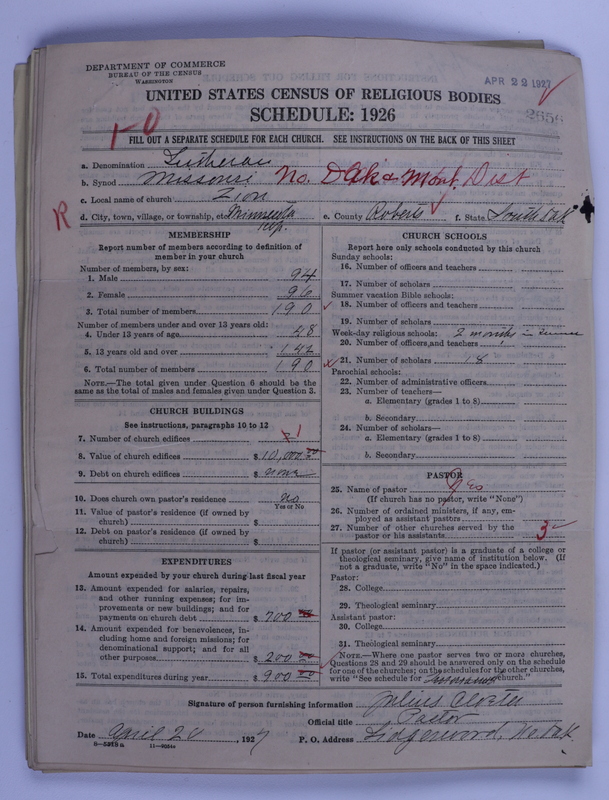 DEPARTMENT OF COMMERCE
BUREAU OF THE CENSUS
WASHINGTON
APR 22 1927
UNITED STATES CENSUS OF RELIGIOUS BODIES
SCHEDULE: 1926
2656
1-0
FILL OUT A SEPARATE SCHEDULE FOR EACH CHURCH. SEE INSTRUCTIONS ON THE BACK OF THIS SHEET
a. Denomination Lutheran
b. Synod Missouri No. Dak & Mont. Dist
c. Local name of church Zion
R
d. City, town, village, or township, etc. Minnesota Twp. e. County Roberts f. State South Dak
MEMBERSHIP
Report number of members according to definition of
member in your church
Number of members, by sex:
1. Male 94
2. Female 96
3. Total number of members 190
Number of members under and over 13 years old:
4. Under 13 years of age 48
5. 13 years old and over 142
6. Total number of members 190
NOTE.—The total given under Question 6 should be the
same as the total of males and females given under Question 3.
CHURCH BUILDINGS
See instructions, paragraphs 10 to 12
7. Number of church edifices 1
8. Value of church edifices $ 10,000.00
9. Debt on church edifices $ none
10. Does church own pastor's residence No
Yes or No
11. Value of pastor's residence (if owned by
church) $
12. Debt on pastor's residence (if owned by
church) $
EXPENDITURES
Amount expended by your church during last fiscal year
13. Amount expended for salaries, repairs,
and other running expenses; for im-
provements or new buildings; and for
payments on church debt $ 700
14. Amount expended for benevolences, in-
cluding home and foreign missions; for
denominational support; and for all
other purposes $ 200
15. Total expenditures during year $ 900
CHURCH SCHOOLS
Report here only schools conducted by this church
Sunday schools:
16. Number of officers and teachers
17. Number of scholars
Summer vacation Bible schools:
18. Number of officers and teachers
19. Number of scholars
Week-day religious schools: 2 months in summer
20. Number of officers and teachers 1
21. Number of scholars 18
Parochial schools:
22. Number of administrative officers
23. Number of teachers—
a. Elementary (grades 1 to 8)
b. Secondary
24. Number of scholars—
a. Elementary (grades 1 to 8)
b. Secondary
PASTOR
25. Name of pastor Yes
(If church has no pastor, write "None")
26. Number of ordained ministers, if any, em-
ployed as assistant pastors
27. Number of other churches served by the
pastor or his assistants 3
If pastor (or assistant pastor) is a graduate of a college or
theological seminary, give name of institution below. (If
not a graduate, write "No" in the space indicated.)
Pastor:
28. College
29. Theological seminary
Assistant pastor:
30. College
31. Theological seminary
NOTE.—Where one pastor serves two or more churches,
Questions 28 and 29 should be answered only on the schedule
for one of the churches; on the schedules for the other churches,
write "See schedule for church."
Signature of person furnishing information Julius
Official title Pastor
Date April 20, 1927 P. O. Address Lidgerwood, No. Dak.
8—5319a 11—9084